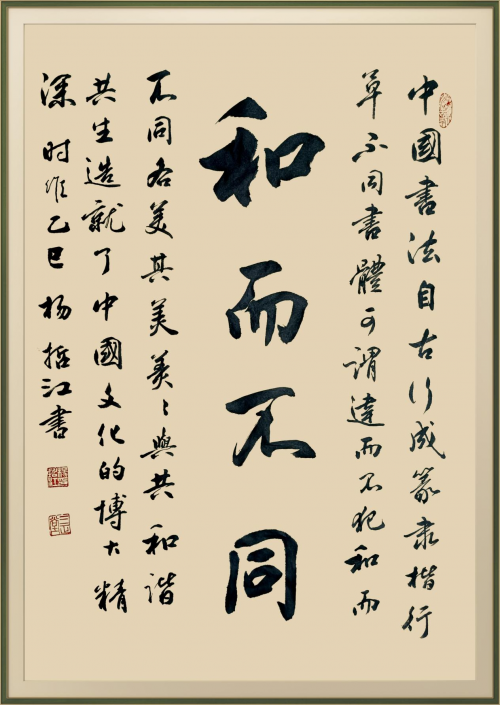 中國書法自古行成篆隶楷行
草不同書體可谓違而不犯和而
和而不同
不同各美其美美〻與共和諧
共生造就了中國文化的博大精
深 时维乙巳 杨哲江書